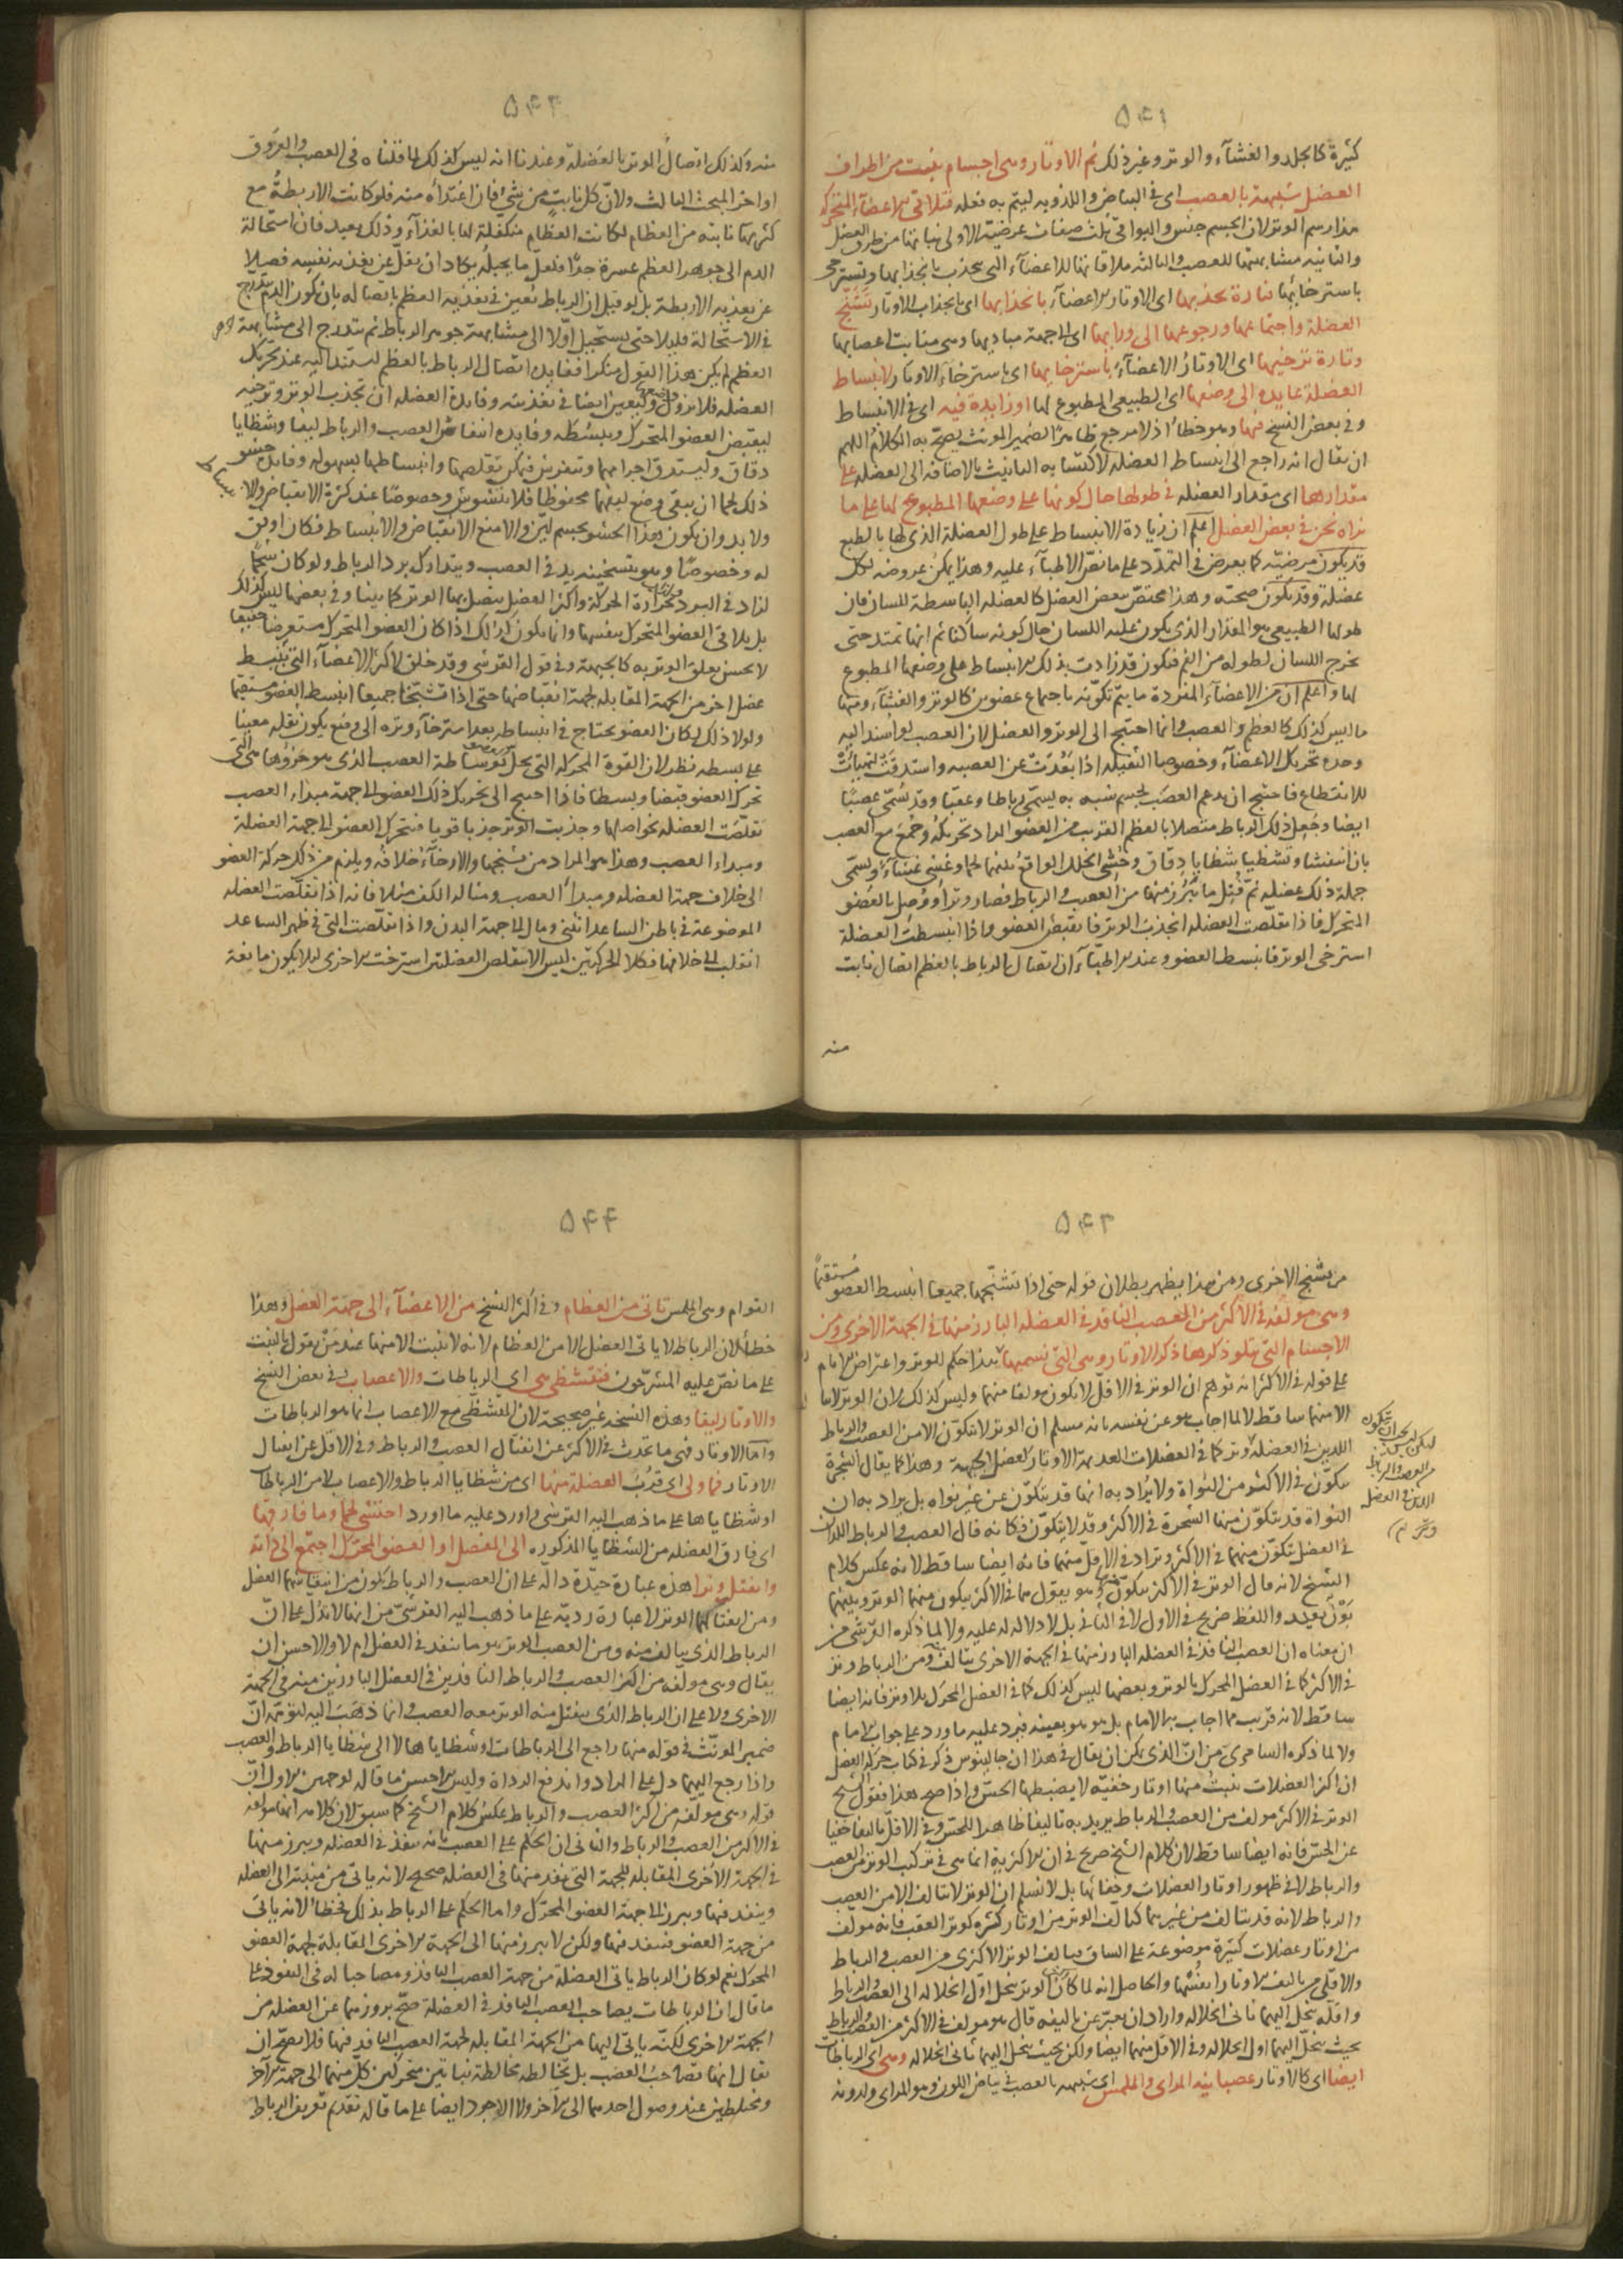 ٥٤١
كثيرة كالجلد والغشاء والوتر وغير ذلك ثم الاوتار وهى اجسام ينبت من اطراف
العضل شبيهة بالعصب اى فى البياض واللدونة ليتم به فعله فتلاقى الاعضاء المتحركة
هذا رسم الوتر لان الجسم جنس والبواقى ثلث صفات عرضية الاولى نباتها من طرف العضل
والثانية مشابهتها للعصب والثالثة ملاقاتها للاعضاء التى يجذب بانجذابها ويسترخى
باسترخائها فتارة تجذبها اى الاوتار الاعضاء بانجذابها اى بانجذاب الاوتار لتشنج
العضلة واجتماعها ورجوعها الى ورائها اى الى جهة مباديها وهى منابت اعصابها
وتارة ترخيها اى الاوتار الاعضاء باسترخائها اى باسترخاء الاوتار لانبساط
العضلة عايدة الى وضعها اى الطبيعى المطبوع لها او زايدة فيه اى فى الانبساط
وفى بعض النسخ فيها وهو خطأ اذ لا مرجع ظاهرا لضمير المونث يصح به الكلام اللهم
ان يقال انه راجع الى انبساط العضلة لاكتسابه التانيث بالاضافة الى العضلة على
مقدارها اى مقدار العضلة فى طولها حال كونها على وضعها المطبوع لها على ما
نراه نحن فى بعض العضل اعلم ان زيادة الانبساط على طول العضلة الذى لها بالطبع
قد يكون مرضية كما يعرض فى التمدد على ما نص الاطباء عليه وهذا يمكن عروضه لكل
عضلة وقد يكون صحته وهذا مختص ببعض العضل كالعضلة الباسطة للسان فان
طولها الطبيعى هو المقدار الذى يكون عليه اللسان حال كونه ساكنا ثم انها تمتد حتى
يخرج اللسان لطوله من الفم فيكون قد زادت بذلك الانبساط على وضعها المطبوع
لها واعلم ان من الاعضاء المفردة ما يتم تكونه باجتماع عضوين كالوتر والغشاء ومنها
ما ليس كذلك كالعظم والعصب وانما احتيج الى الوتر والعضل لان العصب لو اسند اليه
وحده تحريك الاعضاء وخصوصا الثقيلة اذا بعدت عن العصبة واستدقت لتهيأت
للانقطاع فاحتيج ان يدعم العصب بجسم شبيه به يسمى رباطا وعقبا وقد تسمى عصبا
ايضا وجعل ذلك الرباط متصلا بالعظم القريب من العضو المراد تحريكه وجمع مع العصب
بان انتفشا وتشظيا شظايا دقاق وحشى الخلل الواقع بينهما لحما وغشى غشاء ويسمى
جملة ذلك عضلة ثم فتل ما يبرز منها من العصب والرباط فصار وترا ووصل بالعضو
المتحرك فاذا تقلصت العضلة انجذب الوتر فانقبض العضو واذا انبسطت العضلة
استرخى الوتر فانبسط العضو وعند الاطباء ان اتصال الرباط بالعظم اتصال نابت
منه
٥٤٢
منه وكذلك اتصال الوتر بالعضلة وعندنا انه ليس كذلك لما قلناه فى العصب والعروق
اواخر المبحث الثالث ولان كل نابت من شئ فان اغتذاءه منه فلو كانت الاربطة مع
كثرتها نابتة من العظام لكانت العظام متكفلة لها بالغذاء وذلك بعيد فان استحالة
الدم الى جوهر العظم عسرة جدا فلعل ما يحيله يكاد ان يقل عن تغذية نفسه فضلا
عن تغذية الاربطة بل لو قيل ان الرباط تعين فى تغذية العظم باتصاله بان يكون الدم تتدرج
فى الاستحالة قليلا حتى يستحيل اولا الى مشابهة جوهر الرباط ثم يتدرج الى مشابهة جوهر
العظم لم يكن هذا القول منكرا ففايدة اتصال الرباط بالعظم ليستند اليه عند تحريك
العضلة فلا تزول وليعين ايضا فى تغذيته وفايدة العضلة ان تجذب الوتر وترخيه
ليقبض العضو المتحرك ويبسطه وفايدة انتفاش العصب والرباط ليفا وشظايا
دقاق وليستدق اجزائهما وتتغرس فيمكن تقلصها وانبساطها بسهولة وفايدة حشو
ذلك لحما ان يبقى وضع ليفها محفوظا فلا يتشوش وخصوصا عند كثرة الانقباض والانبساط
ولا بد وان يكون هذا الحشو بجسم لين والا منع الانقباض والانبساط فكان اوفق
له وخصوصا وهو بتسخينه يزيد فى العصب ويتدارك برد الرباط ولو كان شحما
لزاد فى البرد حرارة الحركة واكثر العضل يتصل بها الوتر كما بينا وفى بعضها ليس كذلك
بل يلاقى العضو المتحرك بنفسها وانما يكون كذلك اذا كان العضو المتحرك مستعرضا خفيفا
لا يحسن تعلق الوتر به كالجبهة وفى قول القرشى وقد خلق لاكثر الاعضاء التى تنبسط
عضل اخر من الجهة المقابلة لجهة انقباضها حتى اذا تشنجتا جميعا انبسط العضو مستقيما
ولولا ذلك لكان العضو يحتاج فى انبساطه بعد استرخاء وتره الى وضع يكون ثقله معينا
على بسطه نظر لان القوة المحركة التى تحل بوساطة العصب الذى هو جزؤها هى التى
تحرك العضو قبضا وبسطا فاذا احتيج الى تحريك ذلك العضو الى جهة مبداء العصب
تقلصت العضلة نحو اصلها وجذبت الوتر جذبا قويا فتحرك العضو الى جهة العضلة
ومبداء العصب وهذا هو المراد من تشنجها والارخاء خلافه ويلزم من ذلك حركة العضو
الى خلاف جهة العضلة ومبدأ العصب ومثاله الكف مثلا فانه اذا تقلصت العضلة
الموضوعة فى باطن الساعد انثنى ومال الى جهة البدن واذا تقلصت التى فى ظهر الساعد
انقلب الى خلافها فكلا الحركتين ليس الا بتقلص العضلتين استرخت الاخرى لئلا يكون مانعة
٥٤٣
من تشنج الاخرى ومن هذا يظهر بطلان قوله حتى اذا تشنجها جميعا انبسط العضو مستقيما
وهى مولفة فى الاكثر من العصب النافذ فى العضلة البارز منها فى الجهة الاخرى ومن
الاجسام التى يتلو ذكرها ذكر الاوتار وهى التى نسميها هذا حكم للوتر واعتراض الامام
على قوله فى الاكثر انه توهم ان الوتر فى الاقل لا يكون مولفا منهما وليس كذلك لان الوتر لا
الا منهما ساقط لا لما اجاب هو عن نفسه بانه مسلم ان الوتر لا يتكون الا من العصب والرباط
اللذين فى العضلة وتر كما فى العضلات العديمة الاوتار كعضل الجبهة وهذا كما يقال الشجرة
تتكون فى الاكثر من النواة ولا يراد به انها قد يتكون عن غير نواه بل يراد به ان
النواة قد يتكون منها الشجرة فى الاكثر وقد لا يتكون فكانه قال العصب والرباط اللذان
فى العضل يتكون منهما فى الاكثر وتر لا فى الاقل منهما فانه ايضا ساقط لانه عكس كلام
الشيخ لانه قال الوتر فى الاكثر يتكون وهو يقول هما فى الاكثر يتكون منهما الوتر وبينهما
بون بعيد واللفظ صريح فى الاول لا فى الثانى بل لا دلالة له عليه ولا لما ذكره القرشى من
ان معناه ان العصب النافذ فى العضلة البارز منها فى الجهة الاخرى يتالف ومن الرباط وتر
فى الاكثر كما فى العضل المحرك بالوتر وبعضها ليس كذلك كما فى العضل المحرك بلا وتر فانه ايضا
ساقط لانه قريب مما اجاب به الامام بل هو هو بعينه فيرد عليه ما ورد على جواب الامام
ولا لما ذكره السامرى من ان الذى يمكن ان يقال فى هذا ان جالينوس ذكر فى كتاب حركة العضل
ان اكثر العضلات ينبت منها اوتار خفية لا يضبطها الحس واذا صح هذا فقول الشيخ
الوتر فى الاكثر مولف من العصب والرباط يريد به تاليفا ظاهرا للحس وفى الاقل تاليفا خفيا
عن الحس فانه ايضا ساقط لان كلام الشيخ صريح فى ان الاكثرية انما هى فى تركب الوتر من العصب
والرباط لا فى ظهور اوتار العضلات وخفائها بل لا نسلم ان الوتر لا يتالف الا من العصب
والرباط لانه قد يتالف من غيرهما كتالف الوتر من اوتار كثيرة كوتر العقب فانه مولف
من اوتار عضلات كثيرة موضوعة على الساق فتالف الوتر الاكثرى من العصب والرباط
والاقلى من تاليف الاوتار انفسها والحاصل انه لما كان الوتر ينحل اول انحلاله الى العصب والرباط
واقله ينحل اليهما ثانى انحلاله واراد ان يعبر عن تاليفه قال هو مولف فى الاكثر من العصب والرباط
بحيث ينحل اليهما اول انحلاله وفى الاقل منهما ايضا ولكن بحيث ينحل اليهما ثانى انحلاله وهى اى الرباطات
ايضا اى كالاوتار عصبانية المراى والملمس اى شبيهة بالعصب فى بياض اللون وهو المراى ولدونة
٥٤٤
القوام وهى الملمس تاتى من العظام وفى اكثر النسخ من الاعضاء الى جهة العضل وهذا
خطأ لان الرباط لا ياتى العضل الا من العظام لانه لا تنبت الا منها عند من يقول بالنبت
على ما نص عليه المشرحون فتتشظى هى اى الرباطات والاعصاب وفى بعض النسخ
والاوتار ليفا وهذه النسخة غير صحيحة لان المتشظى مع الاعصاب انما هو الرباطات
واما الاوتار فهى ما تحدث فى الاكثر عن انفتال العصب والرباط وفى الاقل عن انفتال
الاوتار فما ولى اى قرب العضلة منها اى من شظايا الرباط والاعصاب لا من الرباطات
او شظاياها على ما ذهب اليه القرشى واورد عليه ما اورد احتشى لحما وما فارقها
اى فارق العضلة من الشظايا المذكورة الى المفصل او العضو المحرك اجتمع الى ذاته
وانفتل وترا هذه عبارة جيدة دالة على ان العصب والرباط يكون من انتفاشهما العضل
ومن انفتالهما الوتر لا عبارة ردية على ما ذهب اليه القرشى من انها لا تدل على ان
الرباط الذى يتالف منه ومن العصب الوتر هو ما ينفذ فى العضل ام لا والاحسن ان
يقال وهى مولفة من اكثر العصب والرباط النافذين فى العضل البارزين منه فى الجهة
الاخرى ولا على ان الرباط الذى ينفتل منه الوتر معه العصب وانما ذهب اليه لتوهم ان
ضمير المونث فى قوله منها راجع الى الرباطات او شظاياها لا الى شظايا الرباط والعصب
واذا رجع اليهما دل على المراد واندفع الرداة وليس الاحسن ما قاله لوجهين الاول ان
قوله وهى مولفة من اكثر العصب والرباط عكس كلام الشيخ كما سبق لان كلامه انها مولفة
فى الاكثر من العصب والرباط والثانى ان الحكم على العصب بانه ينفذ فى العضلة ويبرز منها
فى الجهة الاخرى المقابلة للجهة التى نفذ منها فى العضلة صحيح لانه ياتى من منبته الى العضلة
وينفذ فيها ويبرز الى جهة العضو المحرك واما الحكم على الرباط بذلك فخطأ لانه ياتى
من جهة العضو فينفذ فيها ولكن لا يبرز منها الى الجهة الاخرى المقابلة لجهة العضو
المحرك نعم لو كان الرباط ياتى العضلة من جهة العصب النافذ ومصاحبا له فى النفوذ على
ما قال ان الرباطات يصاحب العصب النافذ فى العضلة صح بروزهما عن العضلة من
الجهة الاخرى لكنه ياتى اليها من الجهة المقابلة لجهة العصب النافذ فيها فلا يصح ان
يقال انها تصاحب العصب بل يخالطه مخالطة نباتين متحركين كل منهما الى جهة الآخر
ومختلطين عند وصول احدهما الى الآخر ولا الاجود ايضا على ما قاله تقدم تعريف الرباط